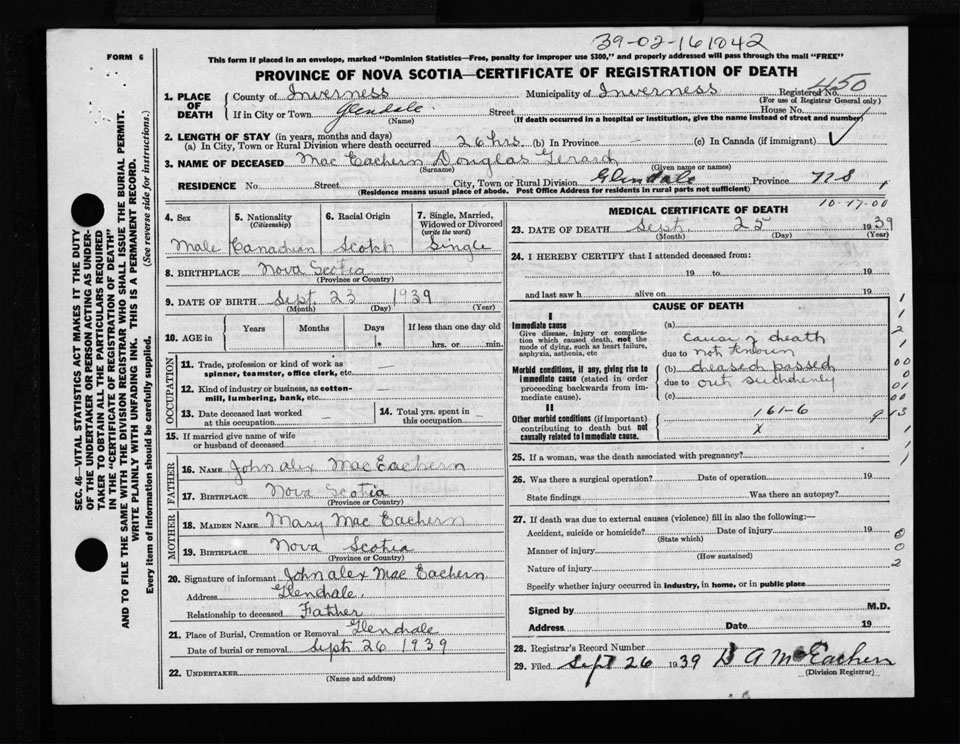 39-02-161042
FORM 6
This form if placed in an envelope, marked "Dominion Statistics—Free, penalty for improper use $300," and properly addressed will pass through the mail "FREE"
PROVINCE OF NOVA SCOTIA—CERTIFICATE OF REGISTRATION OF DEATH
1. PLACE OF DEATH
County of Inverness Municipality of Inverness Registered No. 450
(For use of Registrar General only)
If in City or Town Glendale Street House No.
(Name) (If death occurred in a hospital or institution, give the name instead of street and number)
2. LENGTH OF STAY (in years, months and days)
(a) In City, Town or Rural Division where death occurred 26 hrs. (b) In Province — (c) In Canada (if immigrant)
3. NAME OF DECEASED Mac Eachern Douglas Gerard
(Surname) (Given name or names)
RESIDENCE No. Street City, Town or Rural Division Glendale Province N S
(Residence means usual place of abode. Post Office Address for residents in rural parts not sufficient)
4. Sex
Male
5. Nationality
(Citizenship)
Canadian
6. Racial Origin
Scotch
7. Single, Married, Widowed or Divorced
(write the word)
Single
8. BIRTHPLACE Nova Scotia
(Province or Country)
9. DATE OF BIRTH Sept. 23 1939
(Month) (Day) (Year)
10. AGE in
Years Months Days If less than one day old
1. hrs. or min.
OCCUPATION
11. Trade, profession or kind of work as spinner, teamster, office clerk, etc. —
12. Kind of industry or business, as cotton-mill, lumbering, bank, etc. —
13. Date deceased last worked at this occupation —
14. Total yrs. spent in this occupation —
15. If married give name of wife or husband of deceased
FATHER
16. NAME John alex Mac Eachern
17. BIRTHPLACE Nova Scotia
(Province or Country)
MOTHER
18. MAIDEN NAME Mary Mac Eachern
19. BIRTHPLACE Nova Scotia
(Province or Country)
20. Signature of informant John alex Mac Eachern
Address Glendale.
Relationship to deceased Father
21. Place of Burial, Cremation or Removal Glendale
Date of burial or removal Sept 26 1939
22. UNDERTAKER
(Name and address)
10-17-00
MEDICAL CERTIFICATE OF DEATH
23. DATE OF DEATH Sept. 25 1939
(Month) (Day) (Year)
24. I HEREBY CERTIFY that I attended deceased from:
19 to 19
and last saw h alive on 19
CAUSE OF DEATH
I
Immediate cause
Give disease, injury or complication which caused death, not the mode of dying, such as heart failure, asphyxia, asthenia, etc
Morbid conditions, if any, giving rise to immediate cause (stated in order proceeding backwards from immediate cause).
II
Other morbid conditions (if important) contributing to death but not causally related to immediate cause.
(a)
Cause of death
due to not known
(b) deceased passed
due to out suddenly
(c)
161-6
x
25. If a woman, was the death associated with pregnancy?
26. Was there a surgical operation? Date of operation 19
State findings Was there an autopsy?
27. If death was due to external causes (violence) fill in also the following:—
Accident, suicide or homicide? Date of injury 19
(State which)
Manner of injury
(How sustained)
Nature of injury
Specify whether injury occurred in industry, in home, or in public place
Signed by M.D.
Address Date 19
28. Registrar's Record Number
29. Filed Sept 26 1939 D A McEachern
(Division Registrar)
SEC. 46—VITAL STATISTICS ACT MAKES IT THE DUTY
OF THE UNDERTAKER OR PERSON ACTING AS UNDER-
TAKER TO OBTAIN ALL THE PARTICULARS REQUIRED
IN THE "CERTIFICATE OF REGISTRATION OF DEATH"
AND TO FILE THE SAME WITH THE DIVISION REGISTRAR WHO SHALL ISSUE THE BURIAL PERMIT.
WRITE PLAINLY WITH UNFADING INK. THIS IS A PERMANENT RECORD.
Every item of information should be carefully supplied. (See reverse side for instructions.)